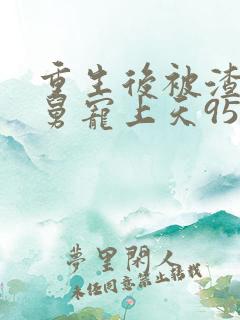 重生後被渣
舅寵上天95
夢里閑人
未任同意禁止轉載